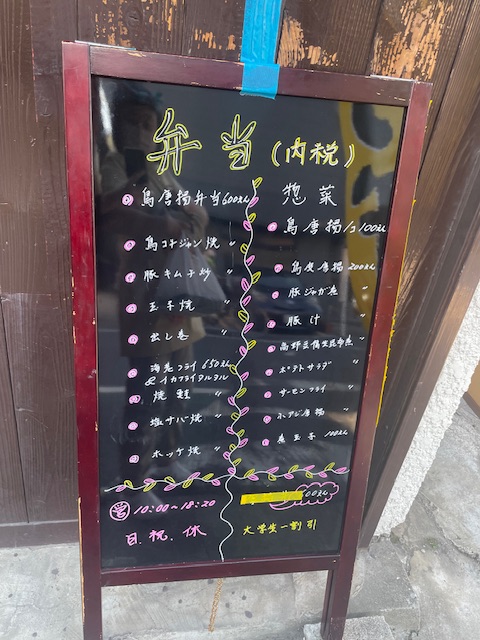 弁当(内税)
鳥唐揚弁当600えん
鳥コチジャン焼 〃
豚キムチ炒 〃
玉子焼 〃
出し巻 〃
海老フライ 650えん
&イカフライタルタル
焼鮭 〃
塩サバ焼 〃
ホッケ焼 〃
惣菜
鳥唐揚1コ100えん
鳥皮唐揚200えん
豚ジャガ煮 〃
豚汁 〃
高野豆腐
ポテトサラダ 〃
サーモンフライ 〃
小アジ唐揚 〃
煮玉子 100えん
営 10:00~18:20
日、祝、休
00えん
大学生一割引